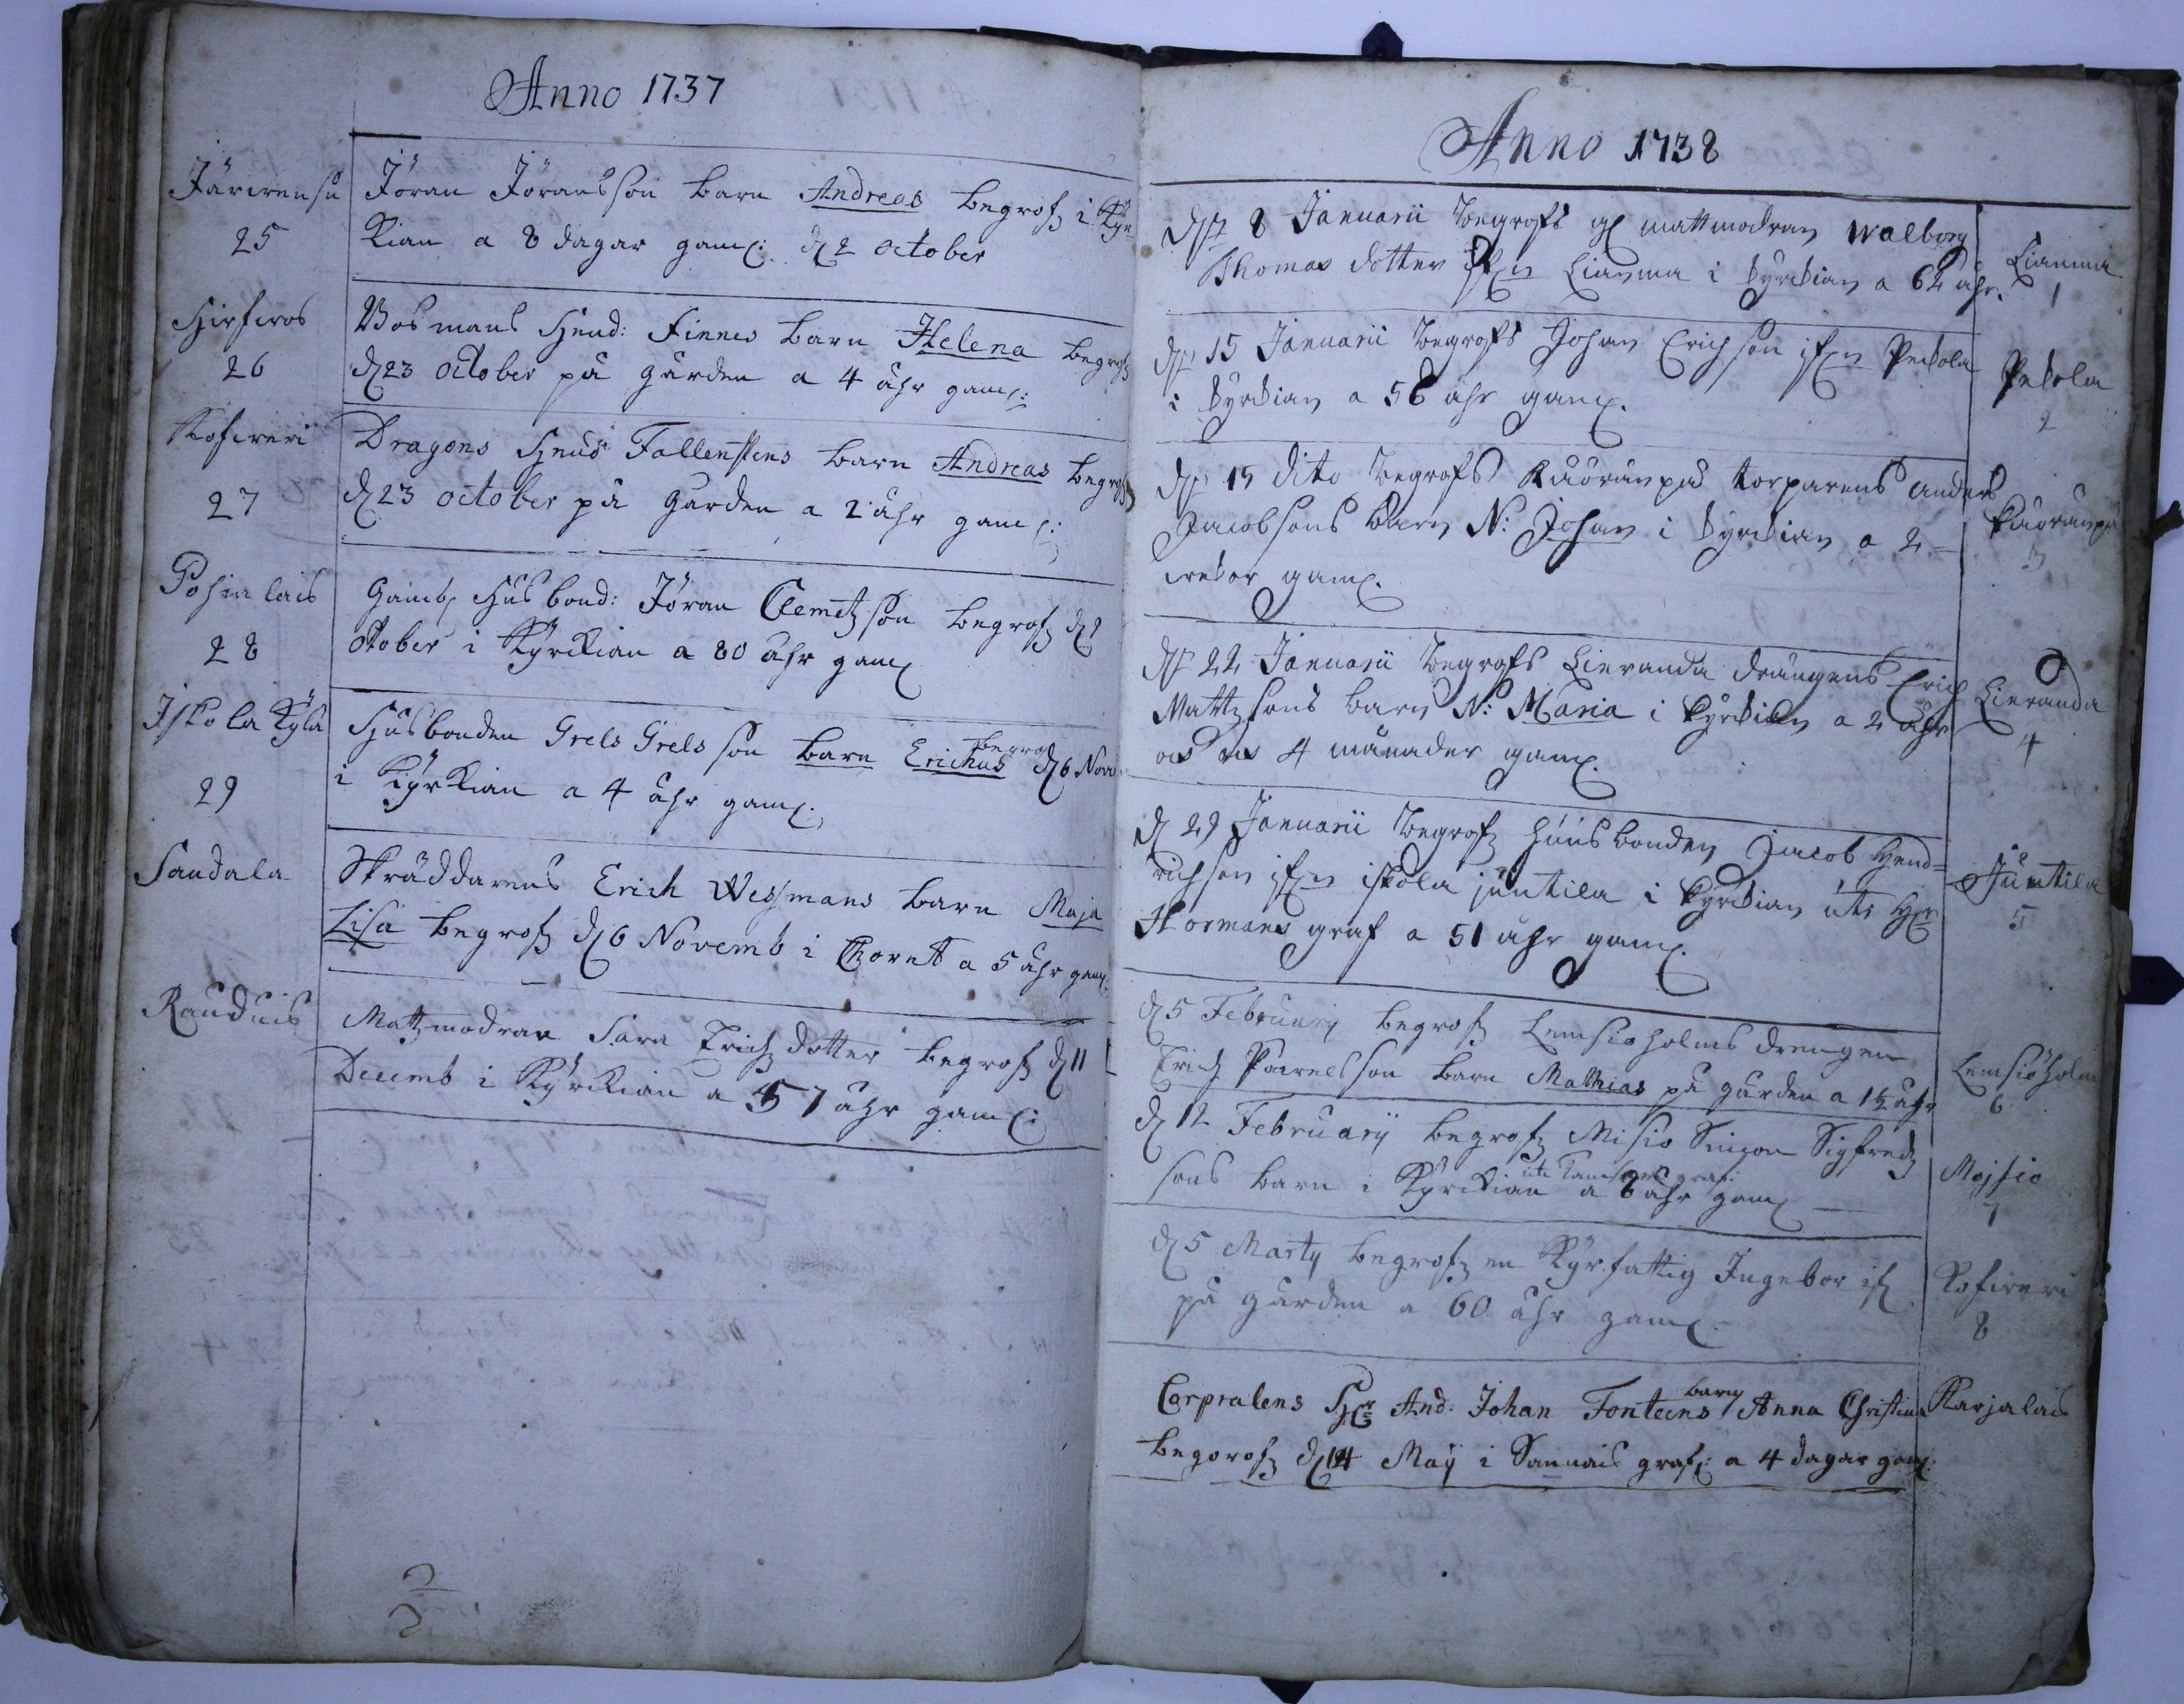 Anno 1737
Järvensu
25
Jöran Jöransson barn Andreas begrofz i Kyr
Kian a 8 dagar gaml: d 2 october
Hirfvos
26
Bosmans Hend: Finnes barn Helena begrofz
d 23 october på gården a 4 åhr gaml:
Kofveri
27
Dragons Hend Fallenstens barn Andreas begrofz
d 23 october på gården a 2 åhr gaml:
Pohialais
28
Gamb husbond: Jöran Clemetzson begrofz d
october i Kyrckian a 80 åhr gaml
Iskola Kylä
29
Husbonden Grels Grelsson barn Erichus begrof d 6 Nov
i Kyrkian a 4 åhr gaml:
Sandala
Skräddarens Erich Wessmans barn Maja
Lisa begrofz d 6 Novemb i Choret a 5 åhr gaml:
Rauduis
Matzmodran Sara Erichzdotter begrofz d 11
Decemb i Kyrckian a 57 åhr gaml:
Anno 1738
d 8 Januarii begrofs gl mattmodran Walborg
Thomas dotter ifrn Lianma i kyrckian a 62 åhr.
Lianma
1
d 15 Januarii begrofs Johan Erichson ifrn Pekola
i kyrckian a 56 åhr gaml.
Pekola
2
d 15 dito begrofs Kuoranpä torparens Anders
Jacobsons barn N: Johan i kyrckian a 2
vekor gaml.
Kuoranpä
3
d 22 Januarii begrofs Lieranda drängens Erich
Mattzsons barn N: Maria i kyrckian a 2 åhr
4 månader gaml.
Lieranda
4
d 29 Januarii begrofz huusbonden Jacob Hend=
richson ifrn iskola juntila i kyrckian uti Hr
Hormans graf a 51 åhr gaml.
Juntila
5
d 5 February begrofz Lemsioholms drengen
Erich Påvelsson barn Mathias på gården a 1½ åhr
Lemsiöholm
6
d 12 February begrofz Misio Simon Sigfredz
sons barn i Kyrckian a 8 åhr gaml
Mojsio
7
d 5 Marty begrofz en Kyrfattig Ingebor
på gården a 60 åhr gaml.
Kofveri
8
Corpralens Hr And: Johan Fonteens barn Anna Christina
begorofz d 14 Maÿ i Sannais graf: a 4 dagar gaml:
Karjalais